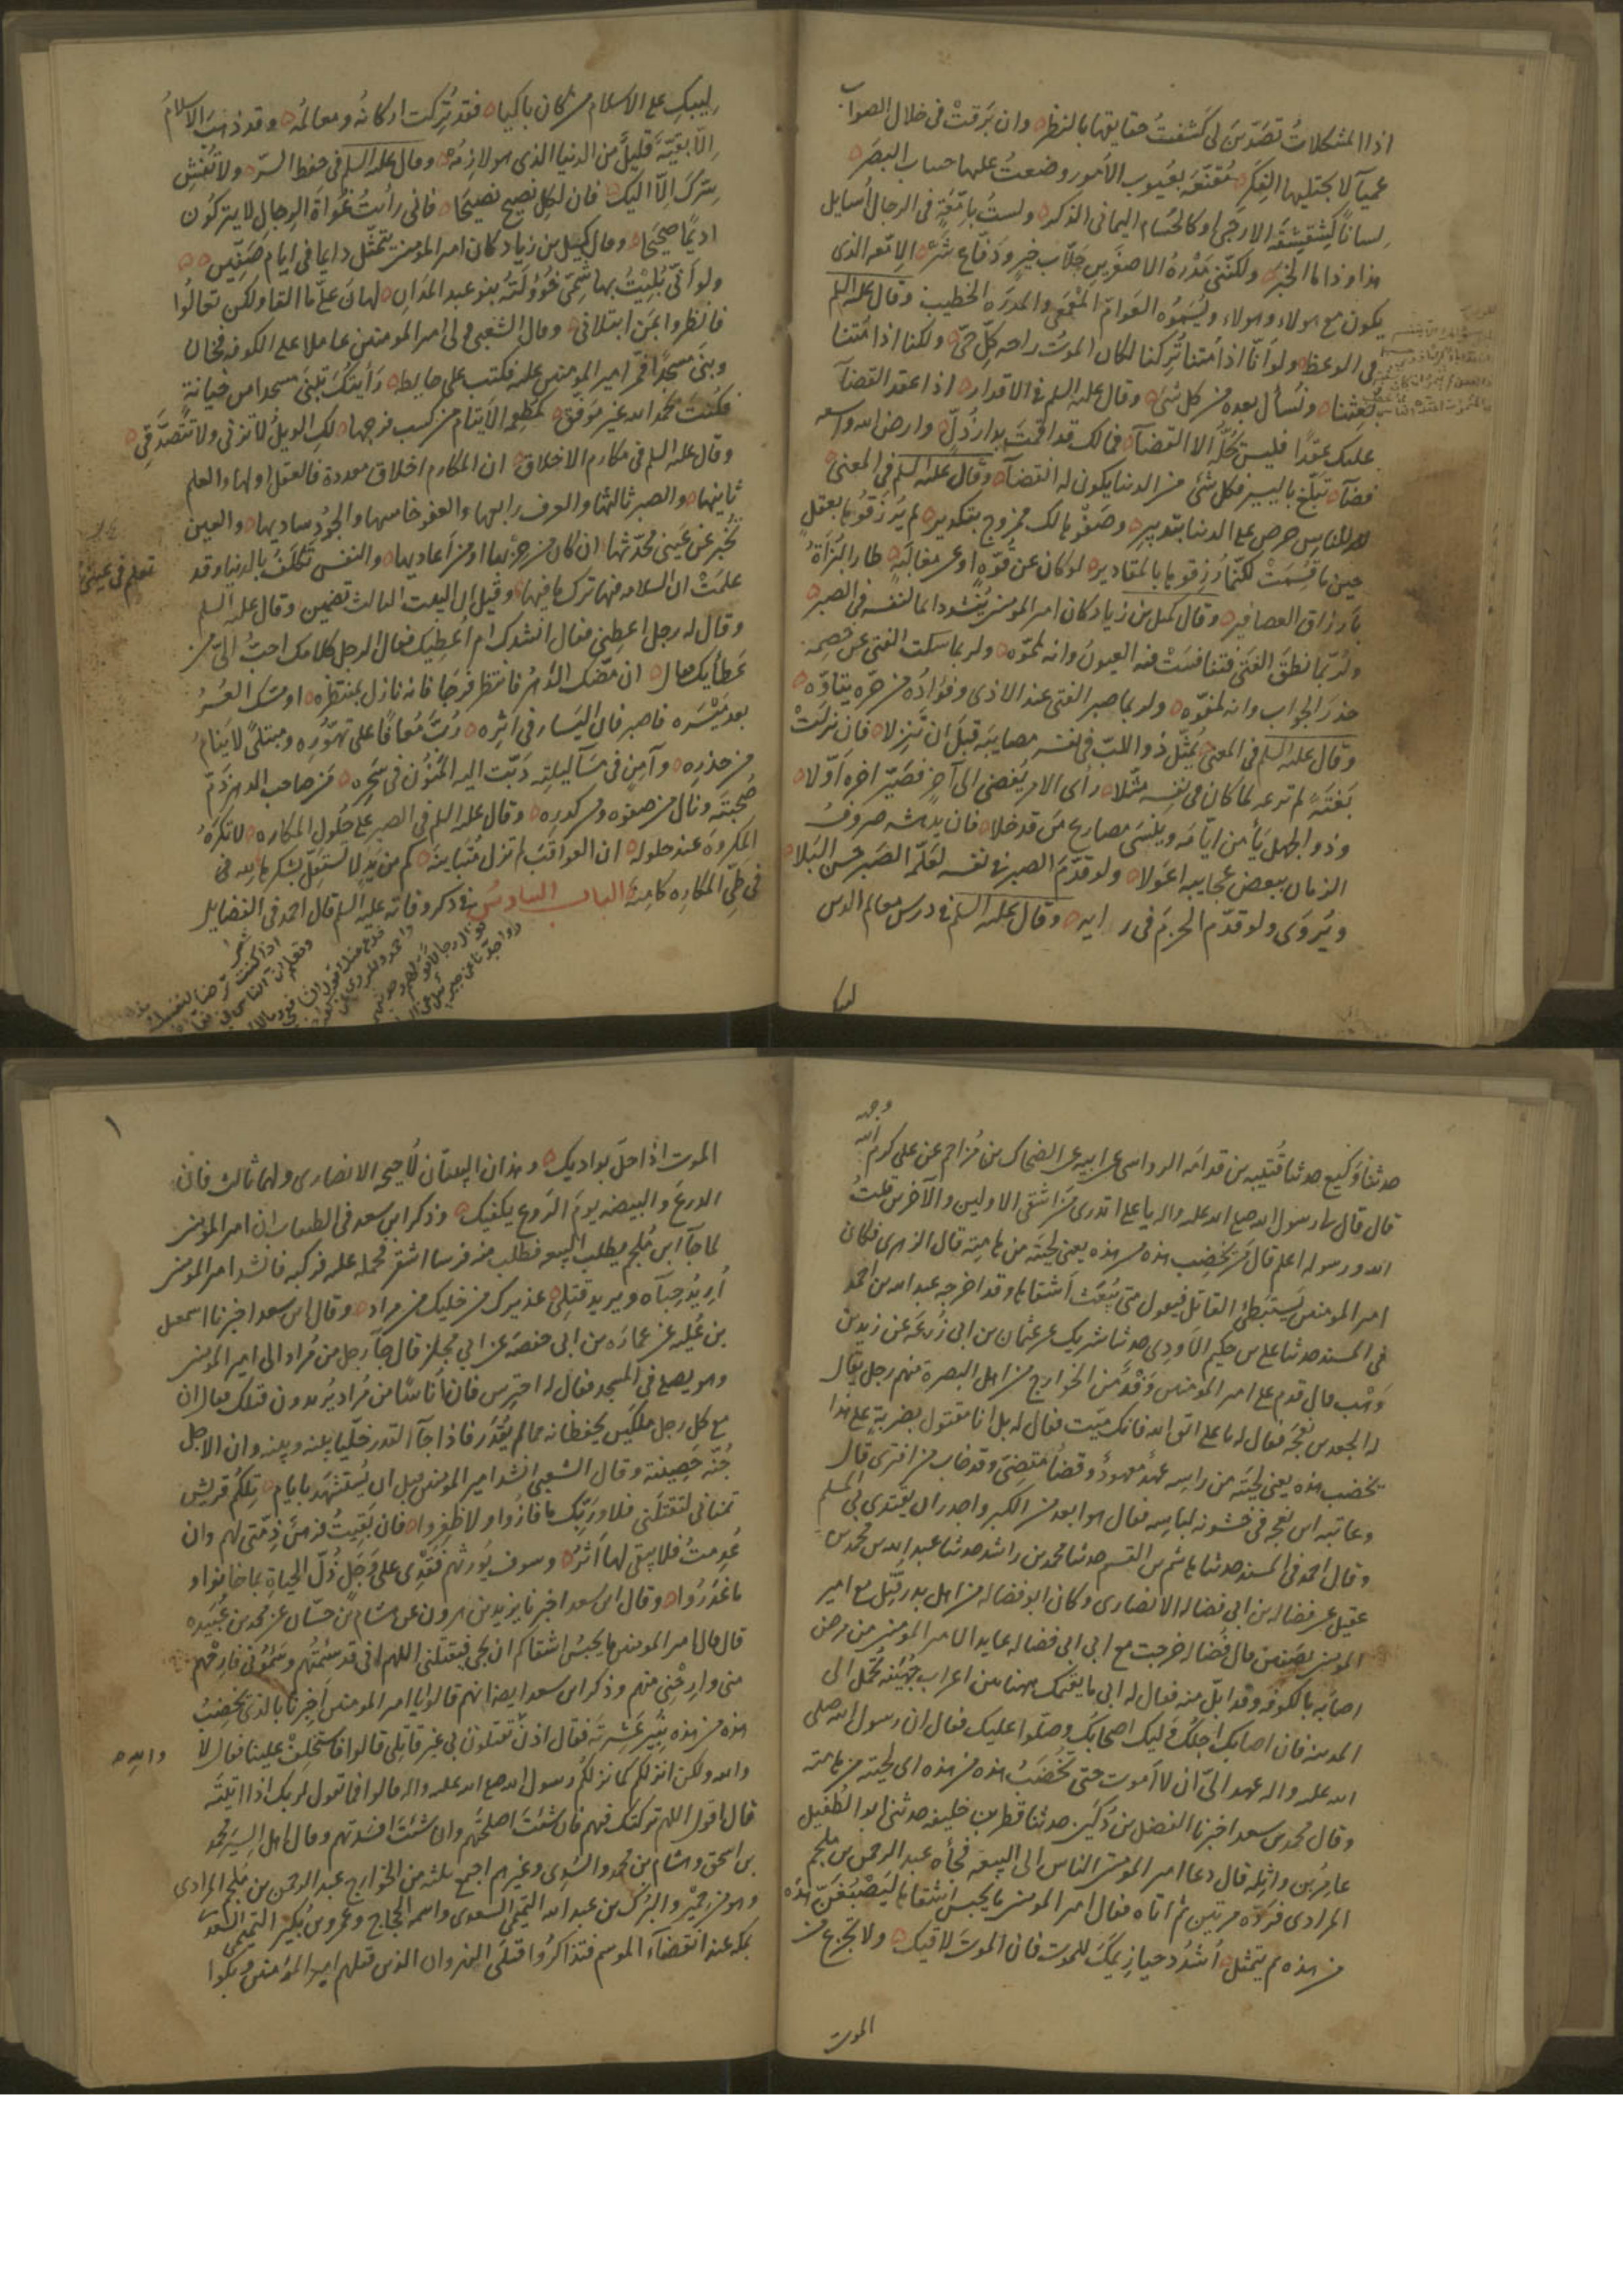 اذا المشكلات تصدّين لى كشفتُ حقايقها بالنظر وان برقتْ فى خلال الصواب
عمياء لا يجتليها الفِكر مُقنّعة بغيوب الأمور وضعتُ عليها حساب البصَر
لسانا كشِقشِقة الارحبى او كالحسام اليمانى الذكر ولستُ بامّعةٍ فى الرجال أسايل
هذا وذا ما الخبر ولكنّنى مِدْرهُ الاصغرين جلّاب خيرٍ ودفّاع شرّ الامّعه الذى
يكون مع هولاء وهولاء ويسمّوه العوامّ والمدره الخطيب وقال عليه السلم
فى الوعظ ولو أنّا اذا مُتنا تُركنا لكان الموتُ راحه كلّ حىّ ولكنا اذا مُتنا
بُعِثنا ونُسأل بعده من كل شىء وقال عليه السلم فى الاقدار اذا عقد القضآ
عليك عقدًا فليس يحُلّه الا القضآ فمالك قد اقمتَ بدار ذُلّ وارض الله واسعه
فضآ تبلّغ باليسير فكل شئ من الدنيا يكون له انقضآ وقال عليه السلم فى المعنى
للناس حرص على الدنيا بتدبير وصَفْوها لك ممزوج بتكدير لم يُرزَقوها بعقلٍ
حين ما قُسِمَتْ لكنّما رُزِقوها بالمقادير لو كان عن قوّةٍ او عن مغالبَةٍ طار البُزاةُ
بارزاق العصافير وقال كميل بن زياد كان امير المومنين يُنشد دايما لنفسه فى الصبر
ولرُبّما نطَقَ الفتى فتنافسَتْ فيه العيونُ وانه لمموّه ولربما سكت الفتى عن خصمه
حذرَ الجواب وانه لمفوّه ولربما صبر الفتى عند الاذى وفوادُه من حرّه يتاوّه
وقال عليه السلم فى المعنى يُمثّل ذو اللبّ فى نفسه مصايبَه قبلَ ان تَنزِلا فان نزلَتْ
بَغتَةً لم ترعه لما كان فى نفسه مثّلا رأى الامر يُفضى الى آخرٍ فصَيّر اخره اوّلا
وذو الجهل يأمن ايّامَه وينسى مصارع مَن قد خلا فان بدهته صروفُ
الزمان ببعض عجايبه اعوَلا ولو قدّمَ الصبر فى نفسه لعَلّمه الصَبر حسن البَلا
ويُروَى ولو قدّم الحزم فى رايه وقال عليه السلم فى درس معالم الدين
ليبكِ
لِيبكِ على الاسلام من كان باكيًا فقد تُركت اركانُه ومعالمُه وقد ذهبَ الاسلامُ
الّا بقيّةً قليلٌ من الدنيا الذى هو لازِمُه وقال عليه السلم فى حفظ السرّ ولا تُفْشِ
سِرّك الّا اليك فان لكل نصيح نصيحًا فانى رأيتُ غُواةَ الرجال لا يتركُون
اديمًا صحيحًا وقال كميل بن زياد كان امير المومنين يتمثّل دايما فى ايام صفّين
ولو أنّى بُليتُ بهاشمىّ خؤولتُه بنو عبد المدانِ لهانَ علىّ ما القا ولكن تعالَوا
فانظروا بمن ابتلانى وقال الشعبى ولى امير المومنين عاملا على الكوفه فخان
وبنى مسجدًا فمرّ امير المؤمنين عليه فكتب على حايطه رأيتُكَ تبنى مسجدا من خيانة
فكنتَ بحمد الله غير موفّق كمُطعِم الايتام من كسب فرجها لكِ الويلُ لا تزنى ولا تتصدّقى
وقال عليه السلم فى مكارم الاخلاق ان المكارم اخلاق معددة فالعقل اولها والعلم
ثانيها والصبر ثالثها والعرف رابعها والعفو خامسها والجُود سادسها والعين
تُخبر عن عينَى محدّثها ان كان من حزبها او من اعاديها والنفس تكلَفُ بالدنيا وقد
علمتْ ان السلامه فيها ترك ما فيها وقيل ان البيت الثالث تضمين وقال عليه السلم
تعلم فى عينى
وقال له رجل اعطِنى فقال انشدك ام أعطيك فقال الرجل كلامك احبّ الىّ من
عَطايك فقال ان عضّك الدَهرُ فانتظر فرجًا فانه نازل بمنتظره او مسّك العُسرُ
بعد مَيْسَره فاصبر فان اليَسار فى اثره رُبّ مُعافًا على تهوّره ومبتلىً لا ينامُ
من حذرِه وآمنٍ فى مسآ ليلته دَبّت اليه المَنُون فى سَحَره مَن صاحب الدهر ذمّ
صُحبتَه ونال من صفوه ومن كدره وقال عليه السلم فى الصبر على حُلول المكاره لا تكرَهْ
المكروهَ عند حلوله ان العواقبَ لم تزل مُتباينَة كم من يدٍ لا تستقلّ بشكرها لله فى
فى طىّ المكاره كامِنَه الباب السادس فى ذكر وفاته عليه السلم قال احمد فى الفضايل
وجهه
حدثنا وكيع حدثنا قُتيبه بن قدامَه الرواسى عن ابيه عن الضحاك بن مُزاحم عن على كرم الله
قال قال لى رسول الله صلى الله عليه واله يا على اتدرى من اشقى الاولين والآخرين قلتُ
الله ورسوله اعلم قال من يخضِب هذه من هذه يعنى لحيَته من هامته قال الزهرى فكان
امير المومنين يَستبطئ القاتل فيقول متى يُبعَث اشقاها وقد اخرجه عبد الله بن احمد
فى المسند حدثنا على بن حكيم الاودى حدثنا شريك عن عثمان بن ابى زُرعَه عن زيد بن
وَهْب قال قدم على امير المومنين وَفْدٌ من الخوارج من اهل البصرة منهم رجل يقال
له الجعد بن نعجَه فقال له يا على اتق الله فانك ميّت فقال له بل انا مقتول بضربةٍ على هذا
يخضب هذه يعنى لحيَته من راسِه عهدٌ معهودٌ وقضاءٌ مقضِىّ وقد خاب من افترى قال
وعاتبه ابن نعجه فى خشونه لباسه فقال هو ابعد من الكبر واجدر ان يقتدى بى المسلم
وقال احمد فى المسند حدثنا هاشم بن القسم حدثنا محمد بن راشد حدثنا عبد الله بن محمد بن
عقيل عن فضاله بن ابى فضاله الانصارى وكان ابو فضاله من اهل بدر قُتِل مع امير
المومنين بصفين قال فضاله خرجت مع ابى ابى فضاله عايدا لامير المؤمنين من مرض
اصابَه بالكوفه وقد ابلّ منه فقال له ابى ما يقيمك ههنا بين اعراب جُهَينَه تحُمَل الى
المدينه فان اصابك اجلُك وليك اصحابُك وصلّوا عليك فقال ان رسول الله صلى
الله عليه واله عهد الىّ ان لا أموت حتى تُخضَبُ هذه من هذه اى لحيته من هامته
وقال محمد بن سعد اخبرنا الفضل بن دُكين حدثنا فطر بن خليفه حدثنى ابو الطُفَيل
عامر بن واثِله قال دعا امير المومنين الناس الى البيعه فجأه عبد الرحمن بن ملجم
المرادى فردّه مرتين ثم اتاه فقال امير المومنين ما يحبس اشقاها ليَصْبُغَنّ هذه
من هذه ثم يتمثل أشدُد حيازِيمَك للموت فان الموتَ لاقيك ولا تجزع من
الموت
الموت اذا حلّ بواديك وهذان البيتان لأحيحه الانصارى ولهما ثالث فان
الدرعَ والبيضه يومَ الرَوع يكفيك وذكر ابن سعد فى الطبقات ان امير المومنين
لما جآ ابن مُلجم يطلب البيعه فطلب منه فرسا اشقر فحمله عليه فركبه فانشد امير المومنين
أُريدُ حِبآه ويريد قتلى عذيرك من خليلك من مراد وقال ابن سعد اخبرنا اسمعيل
بن عُليه عن عمارَه بن ابى حفصَه عن ابى مجلز قال جآ رجل من مُراد الى امير المومنين
وهو يصلى فى المسجد فقال له احترِس فان اناسًا من مُراد يُريدون قتلك فقال ان
مع كل رجل ملكَين يحفظانه مما لم يُقدّر فاذا جآ القدر خلّيا بينه وبينه وان الاجل
جُنّه حَصِينة وقال الشعبى انشد امير المومنين قبل ان يُستشهَد بايام تِلكُم قريش
تمنانى لتقتلنى فلا وربّك ما فازوا ولا ظفِروا فان بَقيتُ فرهنٌ ذِمّتى لهم وان
عُدِمتُ فلا يبقى لها أثرُ وسوف يُورثهم فَقْدى على وَجَلٍ ذُلّ الحياةِ بما خانوا و
ما غَدَرُوا وقال ابن سعد اخبرنا يزيد بن هرون عن هشام بن حسّان عن محمد بن عَبيده
قال قال امير المومنين ما يحبسُ اشقاكم ان يجى فيقتلنى اللهم انى قد سئمتُهم وسئمونى فارحهُم
منى وارِحْنى منهم وذكر ابن سعد ايضا انهم قالوا يا امير المومنين اخبرنا بالذى يخضِبُ
هذه من هذه نبير عَشيرتَه فقال اذن تقتلون بى غير قاتلى قالوا فاستخلِفْ علينا فقال لا
والله
والله ولكن اترككم كما ترككم رسول الله صلى الله عليه واله قالوا فما تقول لربك اذا اتيتَه
قال اقول اللهم تركتك فيهم فان شئتَ اصلحتهم وان شئتَ افسدتهم وقال اهل السِيَر محمد
بن اسحق وهشام بن محمد والسُدى وغيرهم اجتمع ثلثه من الخوارج عبد الرحمن بن مُلجم المرادى
وهو من حِمْيَر والبُرَك بن عبد الله التميمى السعدى واسمه الحجاج وعمرو بن بُكير التميمى السعدى
بمكه عند انقضآء الموسم فتذاكرُوا قتلَى النهروان الذين قتلهم امير المؤمنين وبكوا